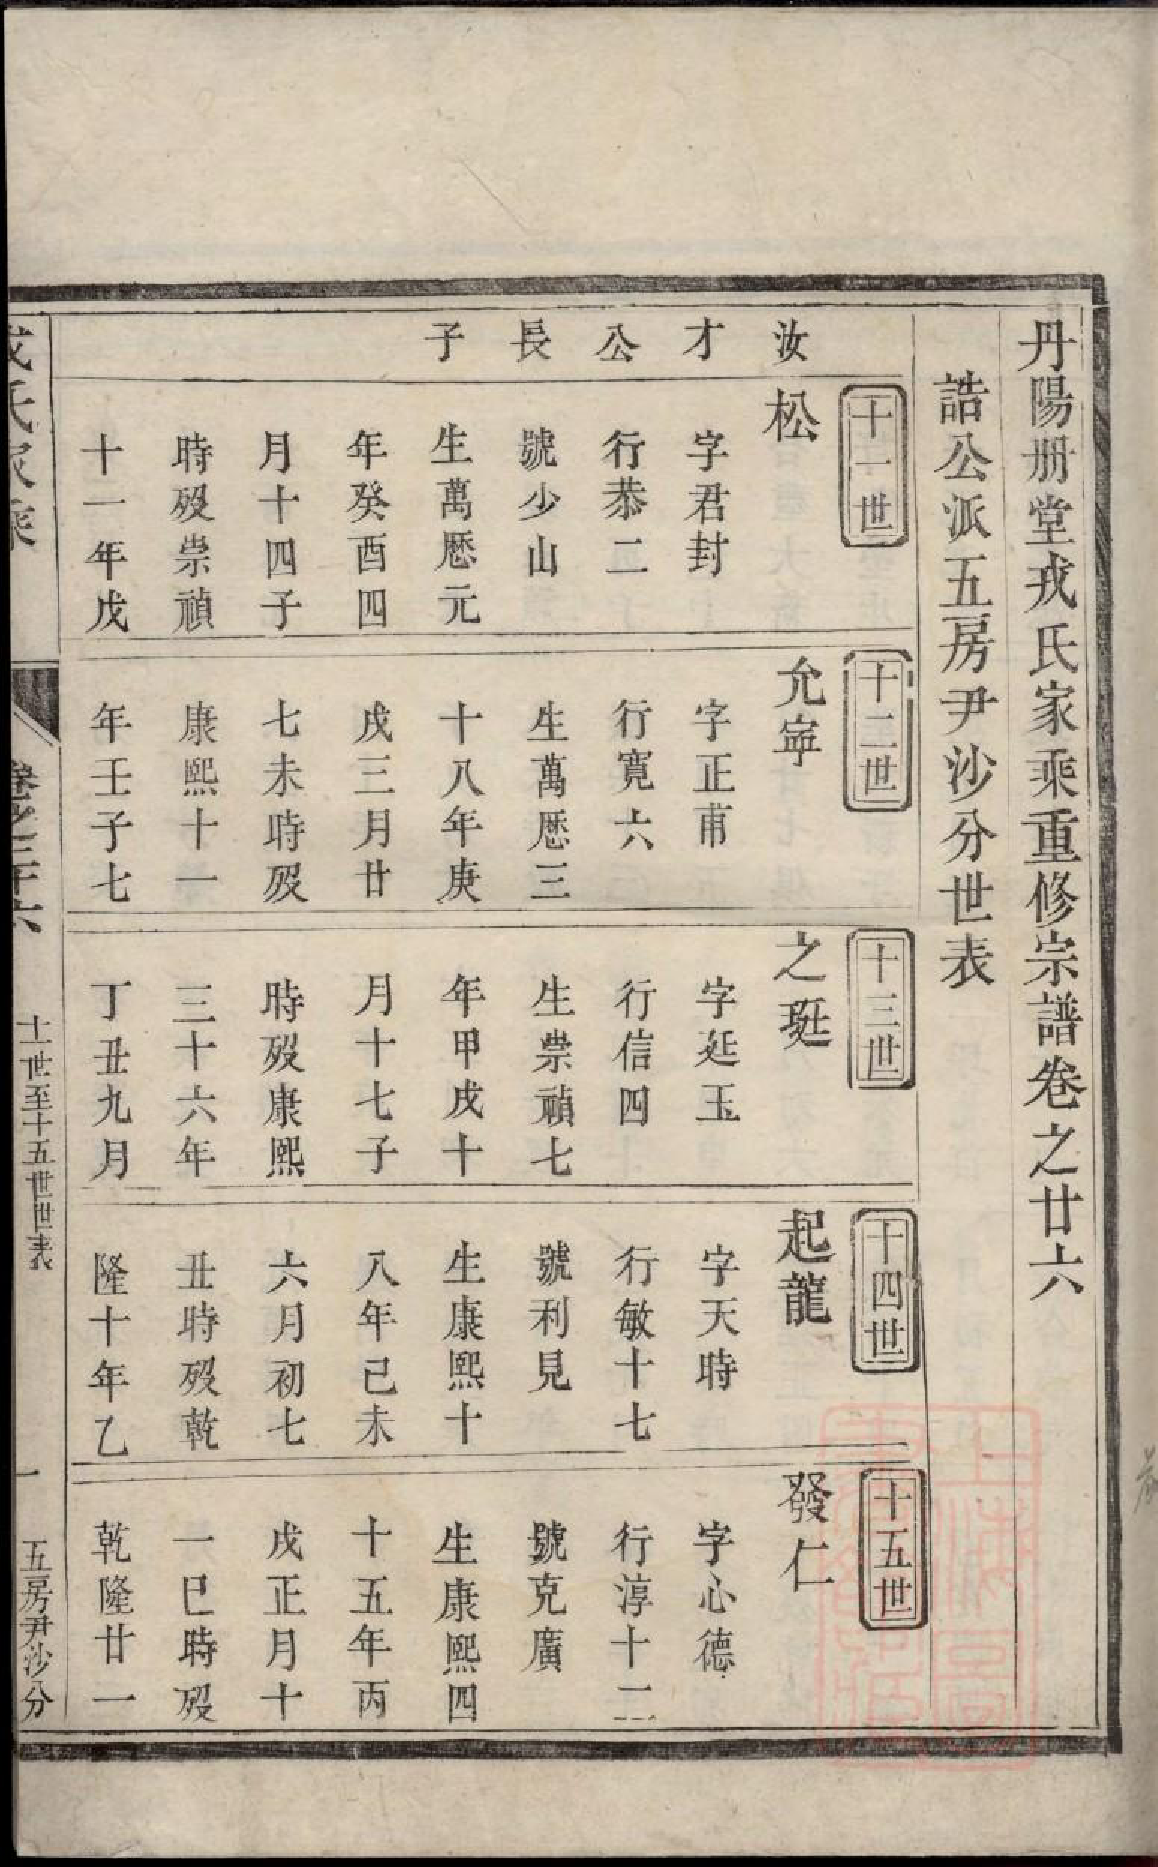 丹陽册堂戎氏家乘重修宗譜卷之廿六
誥公派五房尹沙分世表
汝才公長子
十一世
松
字君封
行恭二
號少山
生萬厯元
年癸酉四
月十四子
時歿崇禎
十一年戊
十二世
允寧
字正甫
行寬六
生萬厯三
十八年庚
戌三月廿
七未時歿
康熙十一
年壬子七
十三世
之珽
字延玉
行信四
生崇禎七
年甲戌十
月十七子
時歿康熙
三十六年
丁丑九月
十四世
起龍
字天時
行敏十七
號利見
生康熙十
八年己未
六月初七
丑時歿乾
隆十年乙
十五世
發仁
字心德
行淳十二
號克廣
生康熙四
十五年丙
戌正月十
一巳時歿
乾隆廿一
戎氏家乘
卷之二十六
十一世至十五世世表
一
五房尹沙分